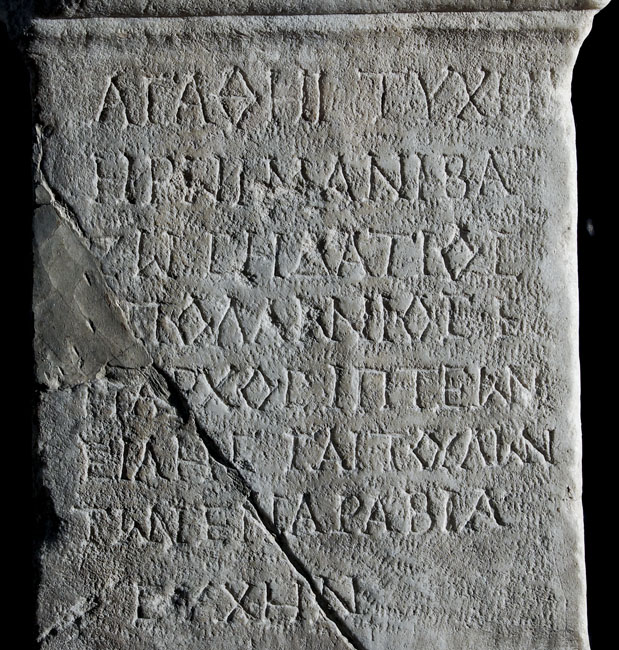 ΑΓΑΘΗΙ ΤΥΧΗ
ΗΡΩΙ ΜΑΝΙΒΑ
ΖΩ Γ ΗΔΑΤΙΟΣ
ΠΟΛΛΑΝΙΟΣ Ε
ΠΑΡΧΟΣ ΙΠΤΕΩΝ
ΕΙΛΗΣ ΓΑΙΤΟΥΛΩΝ
ΤΩΝ ΕΝ ΑΡΑΒΙΑ
ΕΥΧΗΝ